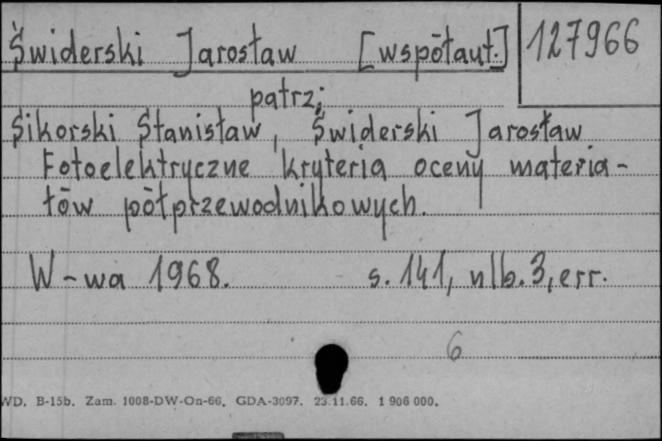 Świderski Jarosław [współaut.] 127966
patrz:
Sikorski Stanisław, Świderski Jarosław
Fotoelektryczne kryteria oceny materia-
łów półprzewodnikowych.
W-wa 1968. s. 141, nlb. 3, err.
6
WD. B-15b. Zam. 1008-DW-On-66. GDA-3097. 23.11.66. 1 906 000.